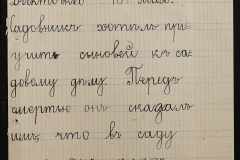 Садовникъ хотѣлъ при-
учить сыновей къ са-
довому дѣлу. Передъ
смертью онъ сказалъ
имъ, что въ саду